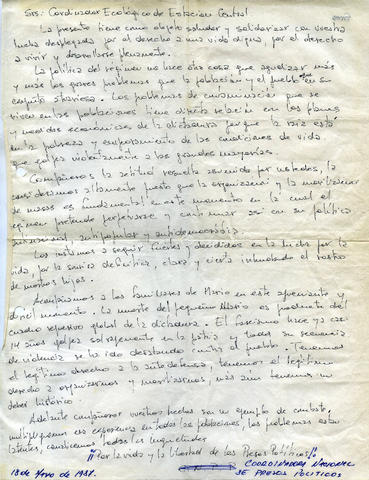 Srs: Cordinador Ecológico de Estación Central
La presente tiene como objeto saludar y solidarizar con vuestra
lucha desplegada por el derecho a una vida digna, por el derecho
a vivir y desarrollarse plenamente.
La política del régimen no hace otra cosa que agudizar más
y más los graves problemas que la población y el pueblo en su
conjunto atraviesa. Los problemas de contaminación que se
viven en las poblaciones tiene directa relación en los planes
y medidas económicas de la dictadura porque la raíz está
en la pobreza y empeoramiento de las condiciones de vida
que golpea violentamente a las grandes mayorías.
Compañeros la actitud resuelta asumida por ustedes, la
consideramos altamente puesto que la organización y la movilización
de masas es fundamental en este momento en la cual el
régimen pretende perpetuarse y continuar así con su política
antipopular y antidemocrática.
Los instamos a seguir fuertes y decididos en la lucha por la
vida, por la salida definitiva, clara y cierta el rostro
de muchos hijos.
Acompañamos a los familiares de Mario en este apremiante y
difícil momento. La muerte del pequeño Mario es producto del
cuadro represivo global de la dictadura. El fascismo hace ya casi
14 años golpea en la patria y toda su secuencia
de violencia se ha ido desatando contra el pueblo. Tenemos
el legítimo derecho a la autodefensa, tenemos el legítimo
derecho a organizarnos y movilizarnos, más aun tenemos un
deber histórico.
Adelante compañeros vuestros hechos son un ejemplo de combate,
multipliquemos esa experiencia en todas las poblaciones, los problemas están
latentes, todas las inquietudes.
"Por la vida y la libertad de los Presos Políticos"
COORDINADORA NACIONAL
DE PRESOS POLITICOS
18 de Mayo de 1987.